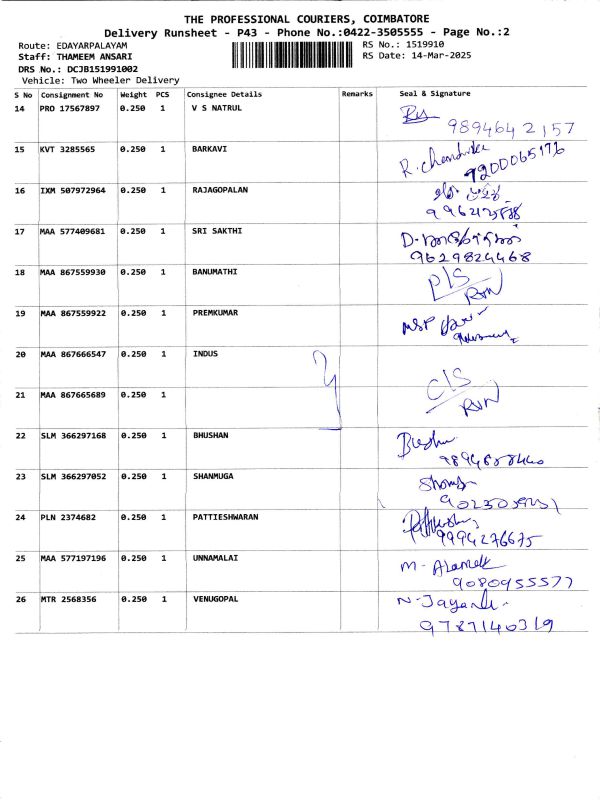 THE PROFESSIONAL COURIERS, COIMBATORE
Delivery Runsheet - P43 - Phone No.:0422-3505555 - Page No.:2
Route: EDAYARPALAYAM RS No.: 1519910
Staff: THAMEEM ANSARI RS Date: 14-Mar-2025
DRS No.: DCJB151991002
Vehicle: Two Wheeler Delivery
S No Consignment No Weight PCS Consignee Details Remarks Seal & Signature
14 PRO 17567897 0.250 1 V S NATRUL
9894642157
15 KVT 3285565 0.250 1 BARKAVI
R. Chendrika
16 IXM 507972964 0.250 1 RAJAGOPALAN
17 MAA 577409681 0.250 1 SRI SAKTHI
9629824468
18 MAA 867559930 0.250 1 BANUMATHI P/S
19 MAA 867559922 0.250 1 PREMKUMAR MSP
20 MAA 867666547 0.250 1 INDUS
21 MAA 867665689 0.250 1 C/S
22 SLM 366297168 0.250 1 BHUSHAN
23 SLM 366297052 0.250 1 SHANMUGA
24 PLN 2374682 0.250 1 PATTIESHWARAN
9994276675
25 MAA 577197196 0.250 1 UNNAMALAI M-
9080955577
26 MTR 2568356 0.250 1 VENUGOPAL N-
9787140319